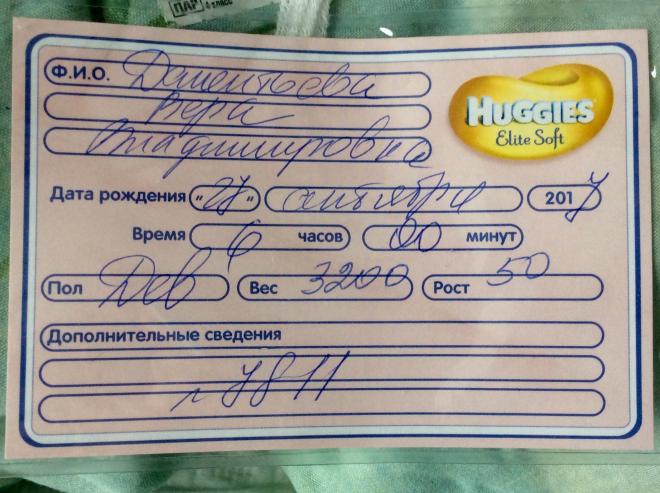 ПАР 4 КЛАСС
Ф.И.О. Дементьева
Вера
Владимировна
HUGGIES
Elite Soft
Дата рождения "27" сентября 2017
Время 6 часов 00 минут
Пол Дев Вес 3200 Рост 50
Дополнительные сведения
7811